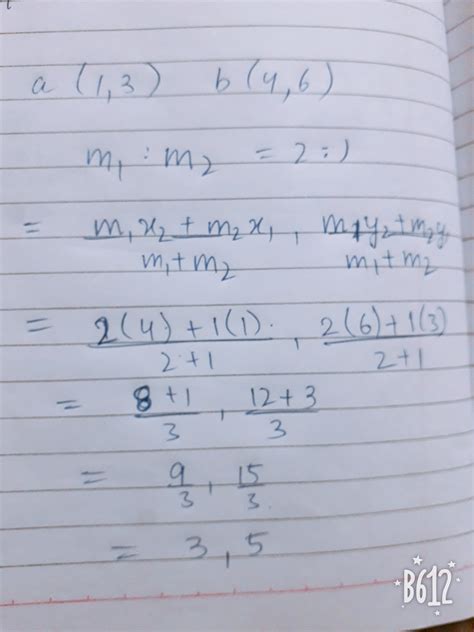 a (1,3) b(4,6)
m₁ : m₂ = 2:1
= m₁x₂ + m₂x₁ / m₁+m₂ , m₁y₂+m₂y / m₁+m₂
= 2(4)+1(1) / 2+1 , 2(6)+1(3) / 2+1
= 8+1 / 3 , 12+3 / 3
= 9/3 , 15/3
= 3 , 5
B612